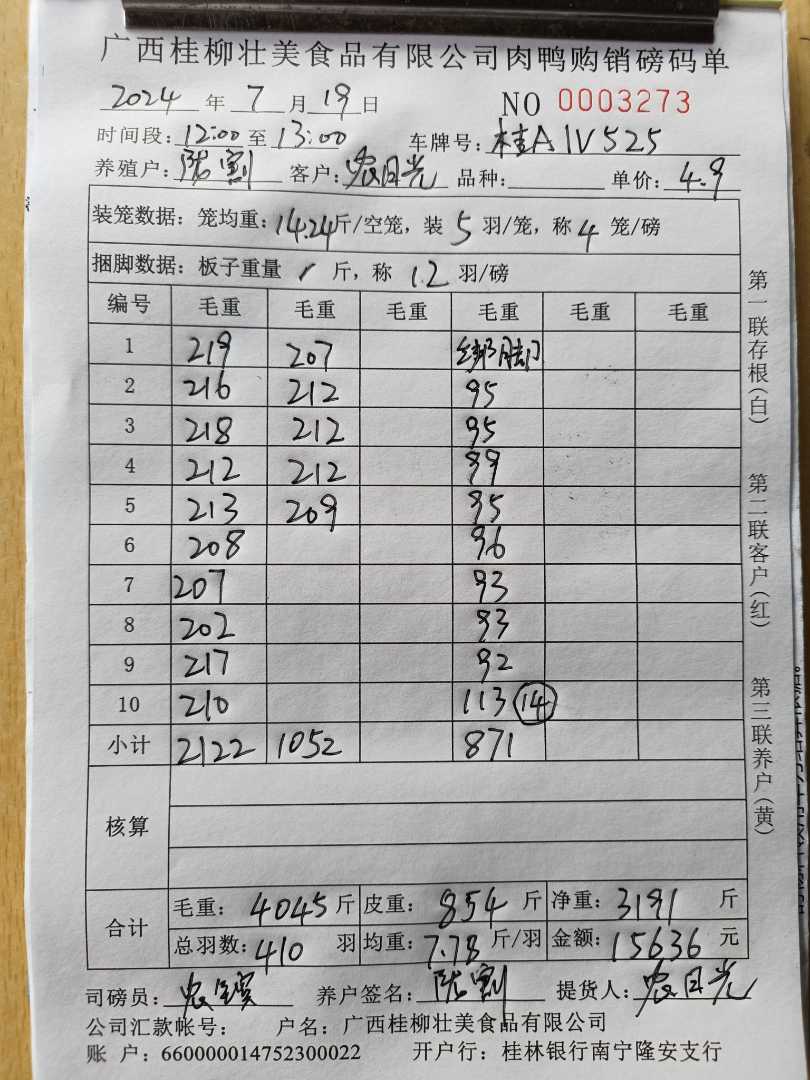 广西桂柳壮美食品有限公司肉鸭购销磅码单
2024 年 7 月 19 日 NO 0003273
时间段: 12:00 至 13:00 车牌号: 桂A1V525
养殖户: 客户: 农日光 品种: 单价: 4.9
装笼数据: 笼均重: 14.24 斤/空笼, 装 5 羽/笼, 称 4 笼/磅
捆脚数据: 板子重量 1 斤, 称 12 羽/磅
编号 毛重 毛重 毛重 毛重 毛重 毛重
1 219 207 绑脚
2 216 212 95
3 218 212 95
4 212 212 99
5 213 209 95
6 208 96
7 207 93
8 202 93
9 217 92
10 210 113 14
小计 2122 1052 871
核算
合计
毛重: 4045 斤 皮重: 854 斤 净重: 3191 斤
总羽数: 410 羽 均重: 7.78 斤/羽 金额: 15636 元
司磅员: 养户签名: 提货人: 农日光
公司汇款帐号: 户名: 广西桂柳壮美食品有限公司
账 户: 660000014752300022 开户行: 桂林银行南宁隆安支行
第一联存根(白)
第二联客户(红)
第三联养户(黄)